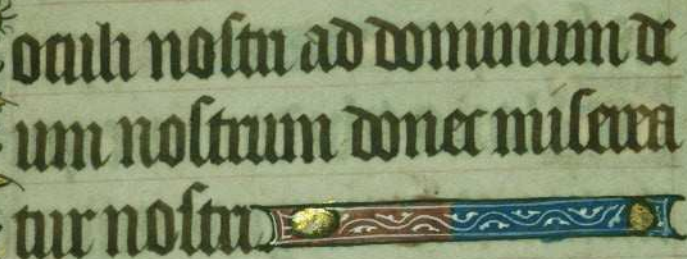 oculi nostri ad dominum de
um nostrum donec miserea
tur nostri.